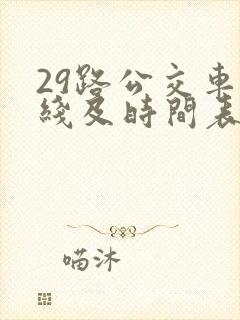 29路公交車
綫及時間表
喵沐